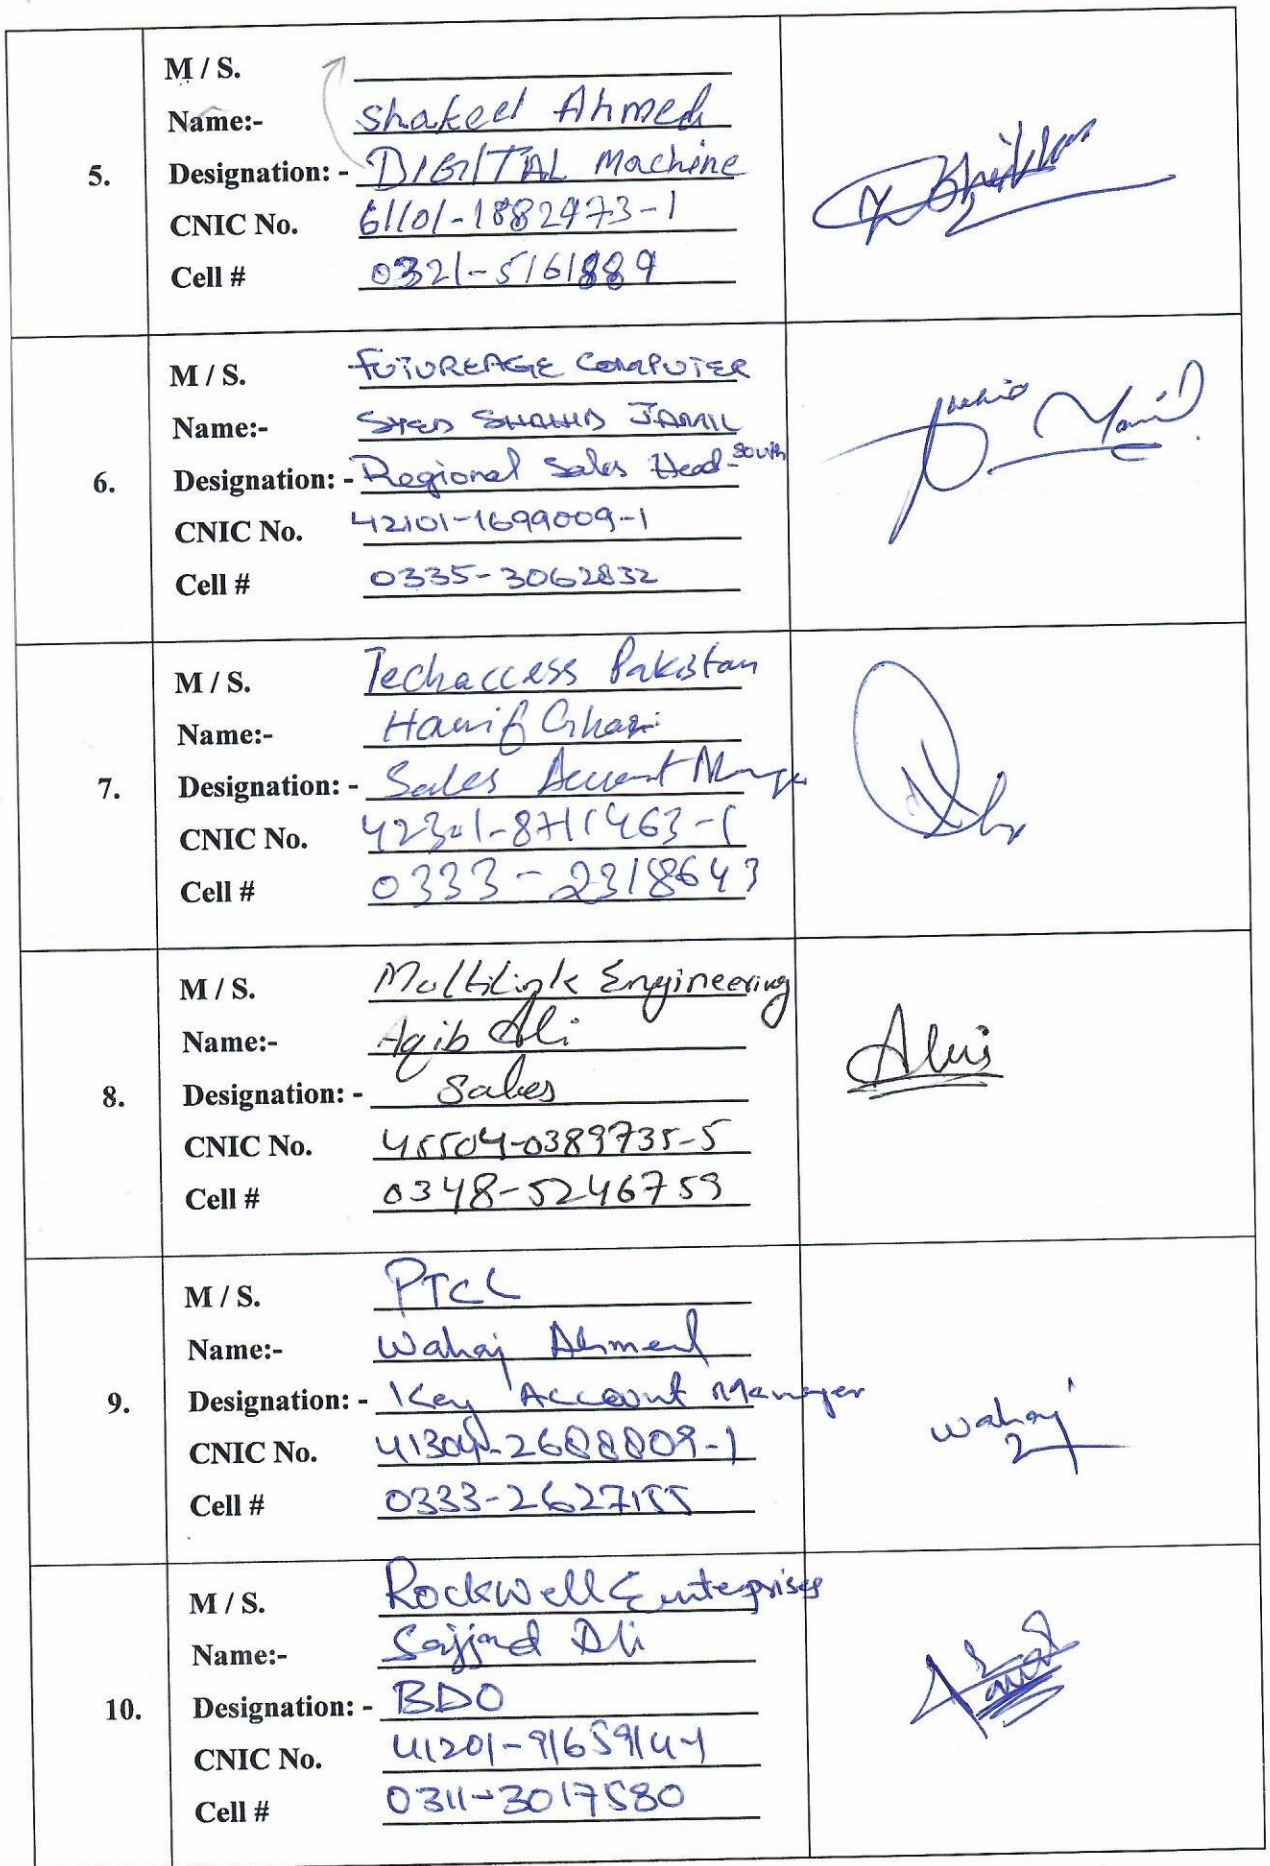 5.
M / S.
Name:- Shakeel Ahmed
Designation: - DIGITAL Machine
CNIC No. 61101-1882973-1
Cell # 0321-5161889
6.
M / S. FUTUREAGE COMPUTER
Name:- SYED SHAHID JAMIL
Designation: - Regional Sales Head-South
CNIC No. 42101-1699009-1
Cell # 0335-3062832
7.
M / S. Techaccess Pakistan
Name:- Hanif Ghazi
Designation: - Sales Account Manager
CNIC No. 42301-8711463-1
Cell # 0333-2318643
8.
M / S. Multilink Engineering
Name:- Aqib Ali
Designation: - Sales
CNIC No. 45504-0389735-5
Cell # 0348-5246759
9.
M / S. PTCL
Name:- Wahaj Ahmed
Designation: - Key Account Manager
CNIC No. 41304-2688809-1
Cell # 0333-2627155
wahaj
10.
M / S. Rockwell Enterprises
Name:- Sajjad Ali
Designation: - BDO
CNIC No.
Cell # 0311-3017580